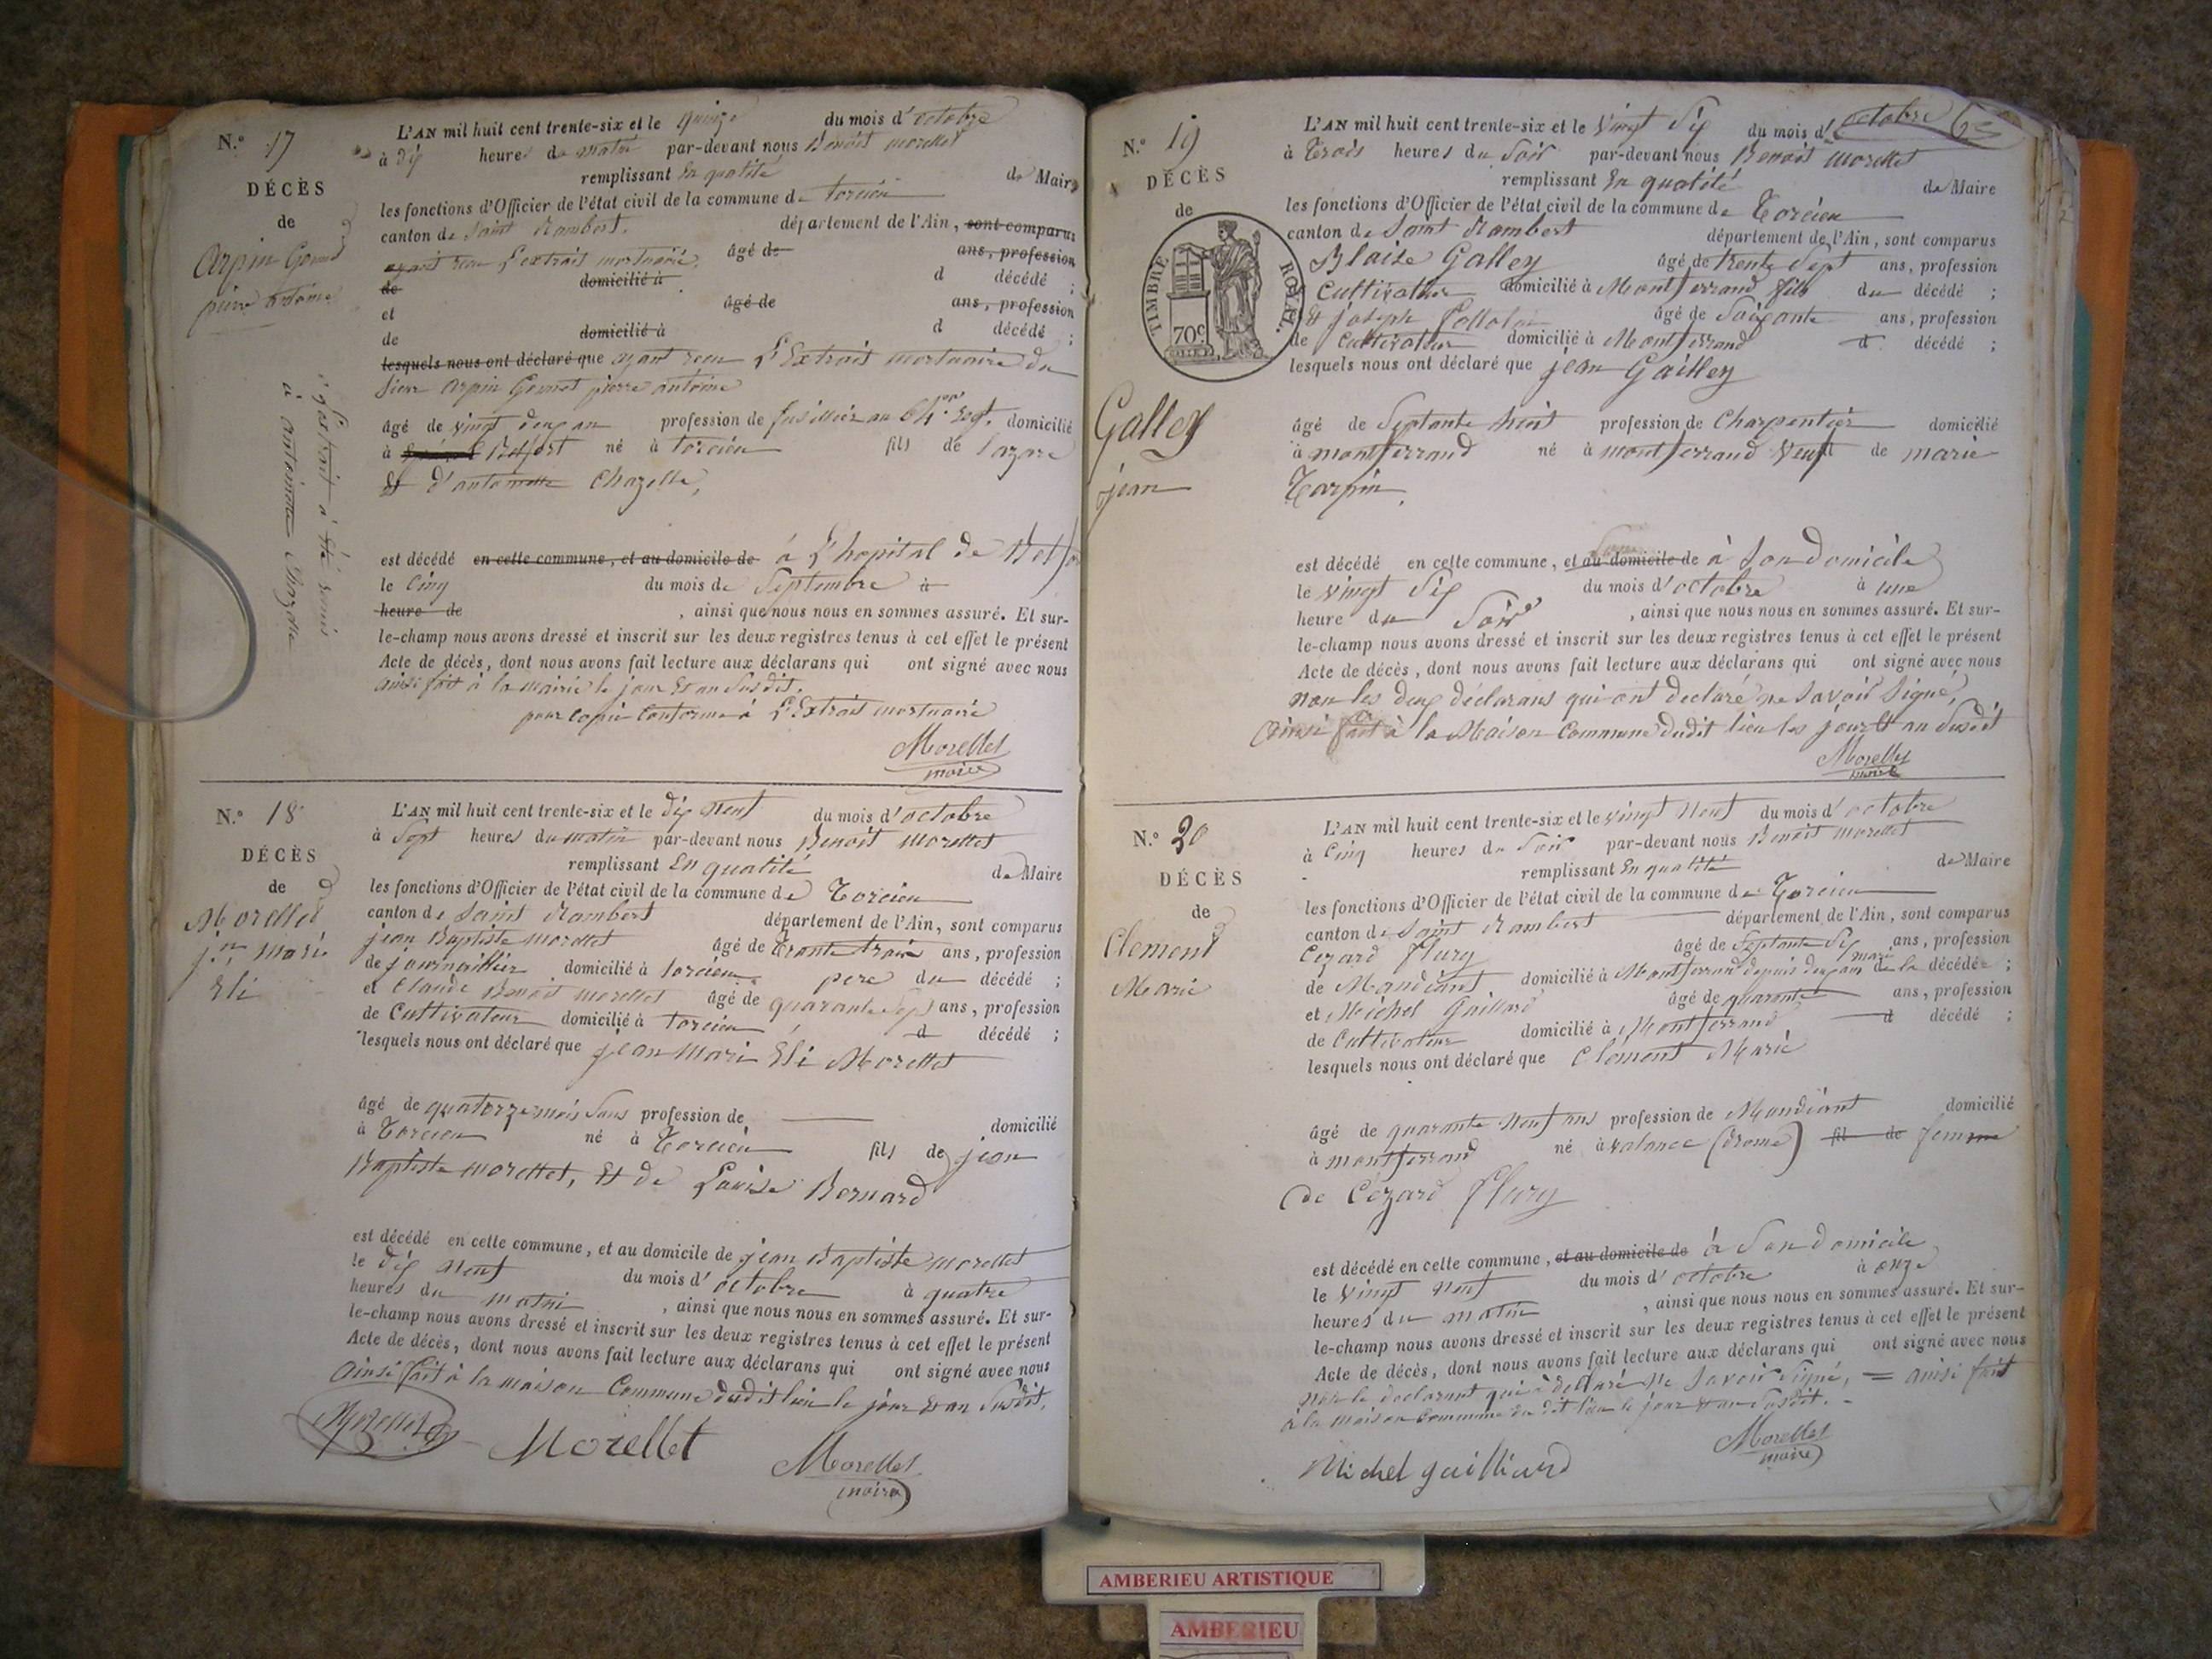 N.º 17
DÉCÈS
de
Arpin Gonnet
pierre antoine
L'extrait a été remis
à antoinette Chazelle
L'AN mil huit cent trente-six et le quinze du mois d'octobre
à dix heures du matin par-devant nous Benoit morellet
remplissant En qualité de Maire
les fonctions d'Officier de l'état civil de la commune de torcieu
canton de Saint Rambert. département de l'Ain, sont comparus
ayant reçu L'extrait mortuaire. âgé de ans, profession
de domicilié à d décédé ;
et âgé de ans, profession
de domicilié à d décédé ;
lesquels nous ont déclaré que ayant reçu L'Extrait mortuaire du
Sieur arpin Gonnet pierre antoine
âgé de vingt deux an profession de fusillier au 64e Regt. domicilié
à Belfort né à torcieu fils de lazare
Et d'antoinette Chazelle,
est décédé en cette commune, et au domicile de à L'hopital de Belfor
le Cinq du mois de Septembre à
heure de , ainsi que nous nous en sommes assuré. Et sur-
le-champ nous avons dressé et inscrit sur les deux registres tenus à cet effet le présent
Acte de décès, dont nous avons fait lecture aux déclarans qui ont signé avec nous
ainsi fait à la mairie le jour Et an Susdit.
pour copie Conforme à L'Extrait mortuaire
Morellet
maire
N.º 18
DÉCÈS
de
Morellet
jn marie
Eli
L'AN mil huit cent trente-six et le dix neuf du mois d'octobre
à Sept heures du matin par-devant nous Benoit morellet
remplissant En qualité de Maire
les fonctions d'Officier de l'état civil de la commune de Torcieu
canton de Saint Rambert département de l'Ain, sont comparus
jean Baptiste morellet âgé de trante trois ans, profession
de journaillier domicilié à torcieu pere du décédé ;
et Claude Benoit morellet âgé de quarante Sept ans, profession
de Cultivateur domicilié à torcieu d décédé ;
lesquels nous ont déclaré que jean Marie Eli Morellet
âgé de quatorze mois Sans profession de domicilié
à Torcieu né à Torcieu fils de jean
Baptiste morellet, Et de Louise Bernard
est décédé en cette commune, et au domicile de jean Baptiste morellet
le dix neuf du mois d'octobre à quatre
heures du matin , ainsi que nous nous en sommes assuré. Et sur-
le-champ nous avons dressé et inscrit sur les deux registres tenus à cet effet le présent
Acte de décès, dont nous avons fait lecture aux déclarans qui ont signé avec nous
Ainsi fait à la maison Commune dudit lieu le jour Et an Susdit.
Morellet Morellet Morellet
maire
63
N.º 19
DÉCÈS
de
TIMBRE ROYAL.
70c
Galley
jean
L'AN mil huit cent trente-six et le vingt Six du mois d'octobre
à Trois heures du Soir par-devant nous Benoit Morellet
remplissant En qualité de Maire
les fonctions d'Officier de l'état civil de la commune de Torcieu
canton de Saint Rambert département de l'Ain, sont comparus
Blaize Galley âgé de trente Sept ans, profession
Cultivateur domicilié à Montferrand fils du décédé ;
Et joseph âgé de Soixante ans, profession
de Cultivateur domicilié à Montferrand d décédé ;
lesquels nous ont déclaré que jean Gailley
âgé de Septante huit profession de Charpentier domicilié
à montferrand né à montferrand Veuf de marie
Tarpin,
est décédé en cette commune, et au domicile de à Son Domicile
le vingt Six du mois d'octobre à une
heure du Soir , ainsi que nous nous en sommes assuré. Et sur-
le-champ nous avons dressé et inscrit sur les deux registres tenus à cet effet le présent
Acte de décès, dont nous avons fait lecture aux déclarans qui ont signé avec nous
non les deux déclarans qui ont declaré ne Savoir Signé,
Ainsi fait à la Maison Commune dudit lieu les jour Et an Susdit
Morellet
maire
N.º 20
DÉCÈS
de
Clement
Marie
L'AN mil huit cent trente-six et le vingt neuf du mois d'octobre
à Cinq heures du Soir par-devant nous Benoit morellet
remplissant En qualité de Maire
les fonctions d'Officier de l'état civil de la commune de Torcieu
canton de Saint Rambert département de l'Ain, sont comparus
Cezard Flury âgé de Septante Six ans, profession
de Mandiant domicilié à Montferrand depuis deux ans mari de la décédée ;
et Michel Gaillard âgé de quarante ans, profession
de Cultivateur domicilié à Montferrand d décédé ;
lesquels nous ont déclaré que Clément Marie
âgé de quarante Neuf ans profession de Mandiant domicilié
à montferrand né à valance (drome) fil de femme
de Cézard Flury
est décédé en cette commune, et au domicile de à Son domicile
le vingt neuf du mois d'octobre à onze
heures du matin , ainsi que nous nous en sommes assuré. Et sur-
le-champ nous avons dressé et inscrit sur les deux registres tenus à cet effet le présent
Acte de décès, dont nous avons fait lecture aux déclarans qui ont signé avec nous
non le declarant qui à déllaré ne Savoir Signé, = ainsi fait
à la Maison Commune du dit lieu le jour Et an Susdit.
Morellet
maire
Michel gailliard
AMBERIEU ARTISTIQUE
AMBERIEU